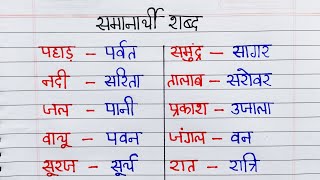 समानार्थी शब्द
पहाड़ – पर्वत समुंद्र – सागर
नदी – सरिता तालाब – सरोवर
जल – पानी प्रकाश – उजाला
वायु – पवन जंगल – वन
सूरज – सूर्य रात – रात्रि